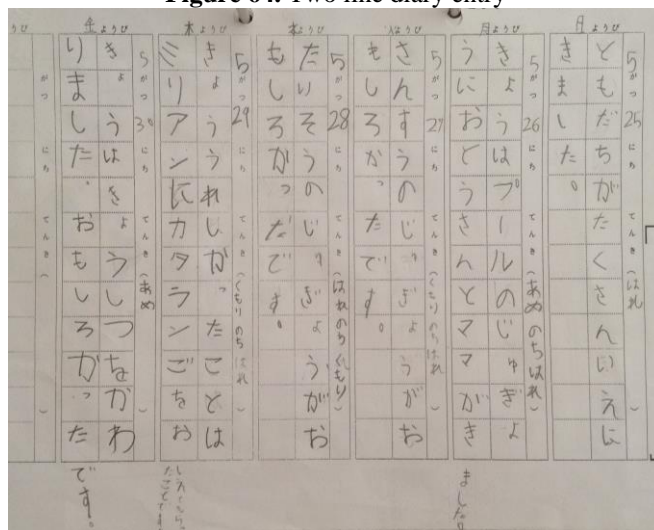 Two line diary entry
月ようび
5がつ25にち てんき(はれ)
ともだちがたくさんいえに
きました。
月ようび
5がつ26にち てんき(あめのちはれ)
きようはプールのじゅぎよ
うにおどうさんとママがき
ました。
ようび
5がつ27にち てんき(くもりのちはれ)
さんすうのじぎょうがお
もしろかったです。
ようび
5がつ28にち てんき(はれのちくもり)
たいそうのじぎょうがお
もしろがっだです。
木ようび
5がつ29にち てんき(くもりのちはれ)
きょううれしかたことは
ミリアンにカタランごをお
たことです。
金ようび
5がつ30にち てんき(あめ)
きょうはきょうしつをかわ
りました。おもしろかった
です。
がつ にち てんき(